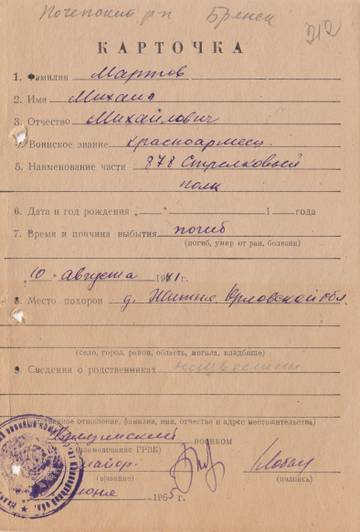 Почепский р-н Брянск
212
КАРТОЧКА
1. Фамилия Мартов
2. Имя Михаил
3. Отчество Михайлович
4. Воинское звание красноармеец
5. Наименование части 878 Стрелковый
полк
6. Дата и год рождения „ “ 1 года
7. Время и причина выбытия погиб
(погиб, умер от ран, болезни)
10 августа 1941 г.
8. Место похорон д. Житня Орловской обл.
(село, город, район, область, могила, кладбище)
9. Сведения о родственниках неизвестны
отношение, фамилия, имя, отчество и адрес местожительства)
военком
(наименование ГРВК)
майор
(звание) (подпись)
июня 1965 г.